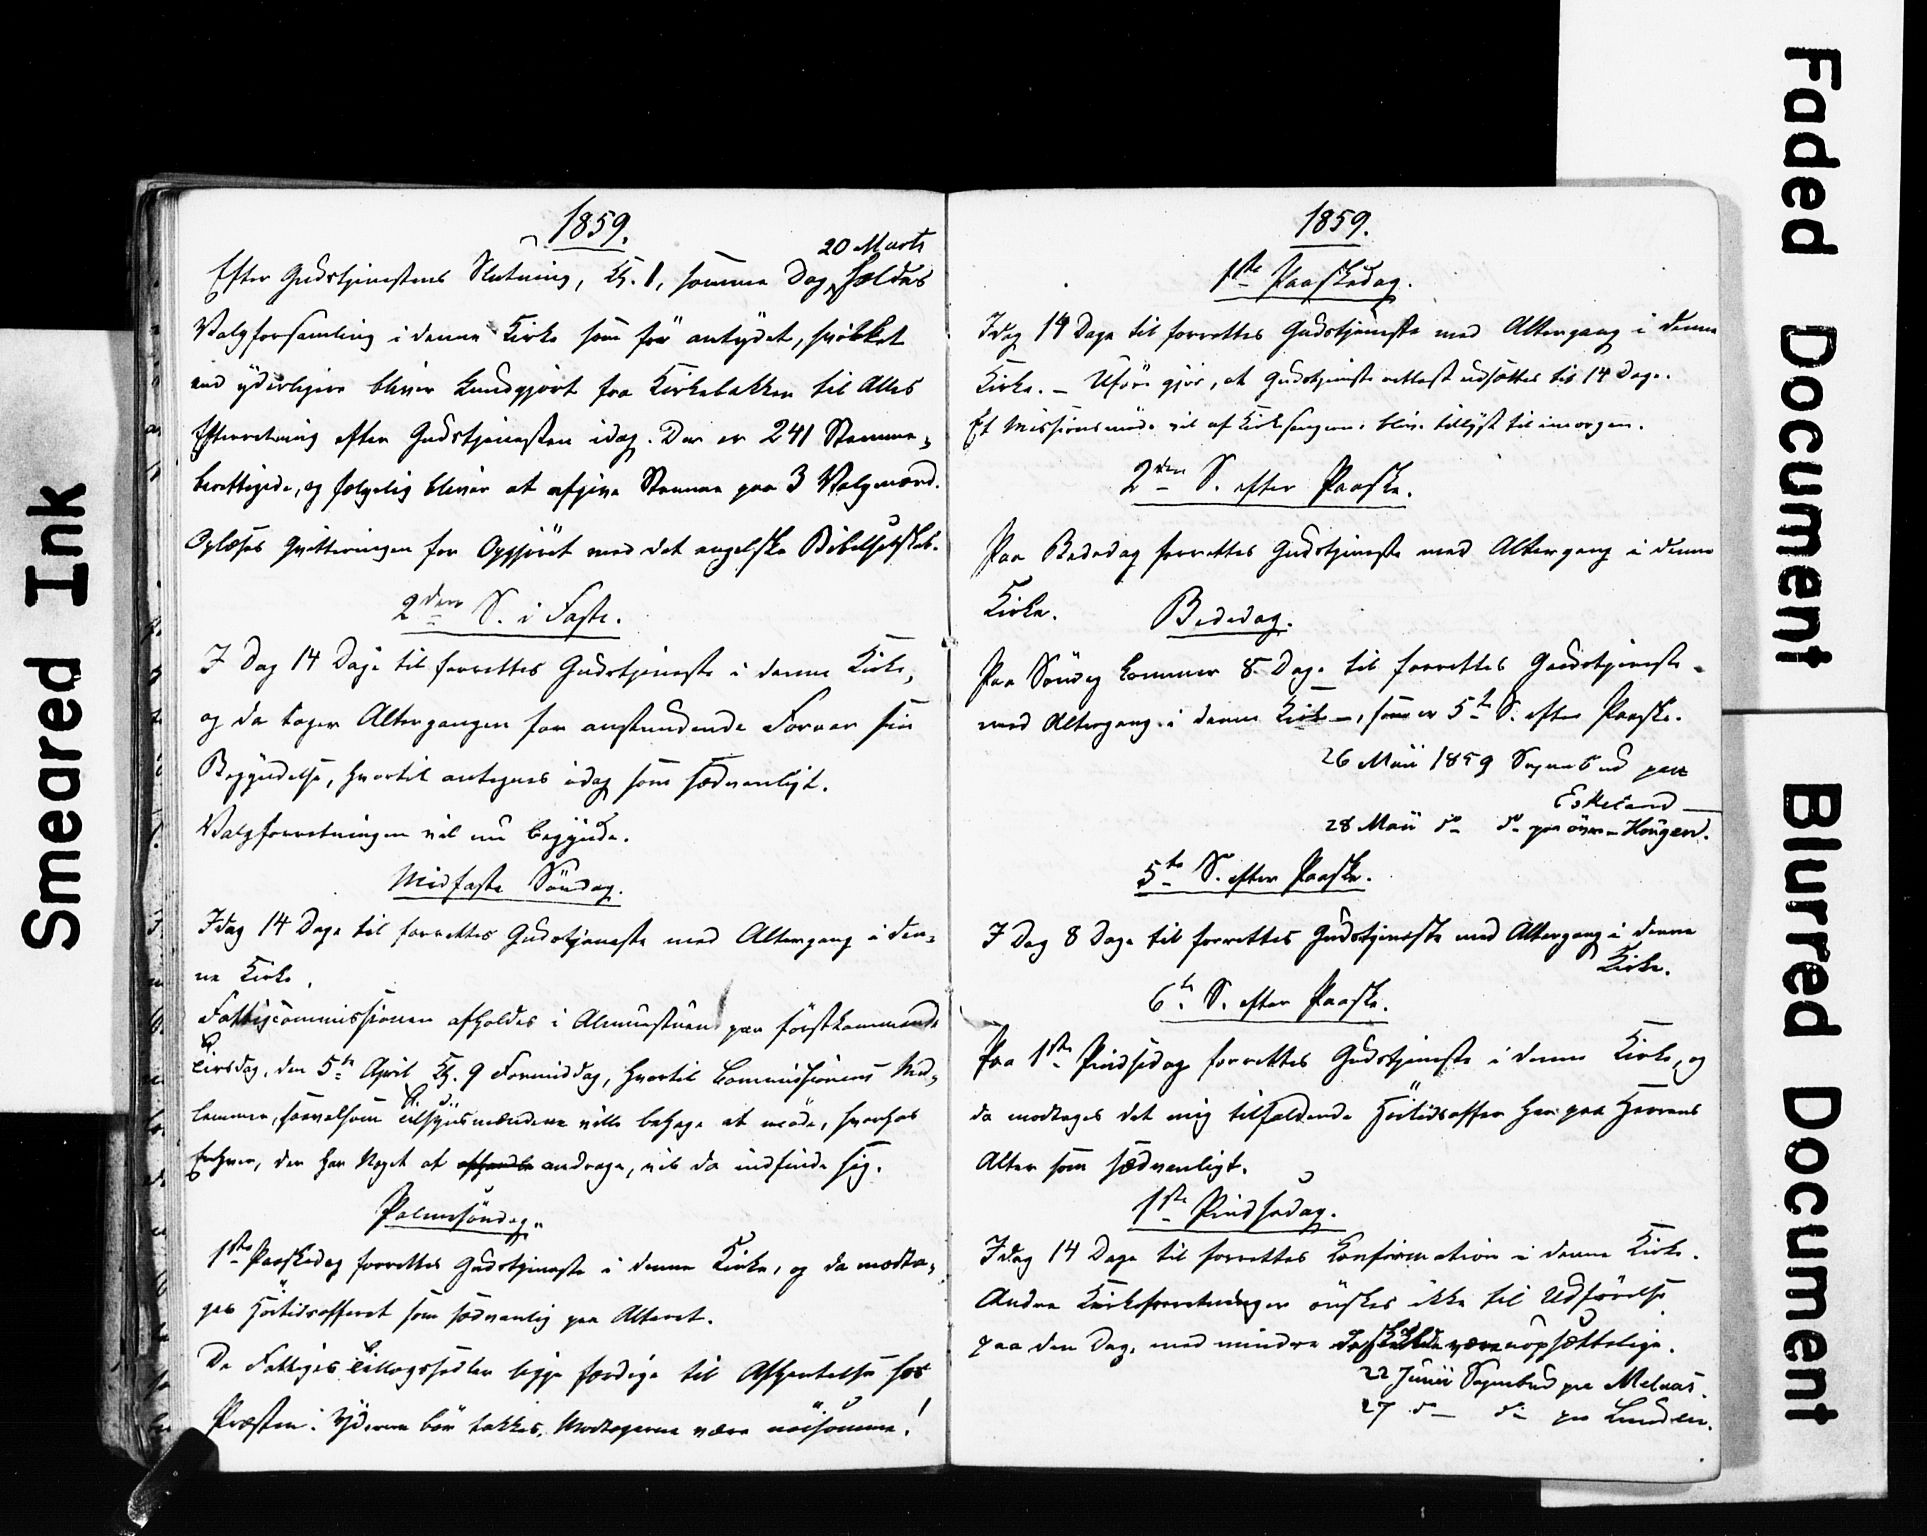 1859.
20 Marts
Efter Gudstjenestens Slutning, Kl. 1, samme Dag, holdes
Valgforsamling i denne Kirke som før antydet, hvilket
end yderligere bliver kundgjort fra Kirkebakken til Alles
Efterretning efter Gudstjenesten idag. Der er 241 Stemme-
berettigede, og følgelig bliver at afgive Stemme paa 3 Valgmænd.
Oplæses Qvitteringen for Opgjöret med det engelske Bibelselskab.
2den S. i Faste.
I Dag 14 Dage til forrettes Gudstjeneste i denne Kirke,
og da tager Altergangen for anstundende Foraar sin
Begyndelse, hvortil antegnes idag som sædvanligt.
Valgforretningen vil nu begynde.
Midfaste Söndag.
Idag 14 Dage til forrettes Gudstjeneste med Altergang i den-
ne Kirke.
Fattigcommissionen afholdes i Almuestuen paa förstkommende
Tirsdag, den 5te April Kl. 9 Formiddag, hvortil Commissionens Med-
lemmer, saavelsom Tilsynsmændene ville behage at möde, hvorhos
Enhver, der har Noget at afhandle andrage, vil da indfinde sig.
Palmesöndag.
1ste Paaskedag forrettes Gudstjeneste i denne Kirke, og da modta-
ges Höitidsofferet som sædvanlig paa Alteret.
De Fattiges Tillagssedler ligge færdige til Afhentelse hos
Præsten. Yderne bör takkes, Modtagerne være nöisomme!
1859.
1ste Paaskedag.
Idag 14 Dage til forrettes Gudstjeneste med Altergang i denne
Kirke. — Uföre gjör, at Gudstjeneste rettest udsættes til 14 Dage.
Et Missionsmöde vil af Kirkesangeren blive tillyst til imorgen.
2den S. efter Paaske.
Paa Bededag forrettes Gudstjeneste med Altergang i denne
Kirke.
Bededag.
Paa Söndag kommer 8 Dage til forrettes Gudstjeneste
med Altergang i denne Kirke —, som er 5te S. efter Paaske.
26 Maii 1859 Sognebud paa
Eskeland —
28 Maii do do paa övre Hougen.
5te S. efter Paaske.
I Dag 8 Dage til forrettes Gudstjeneste med Altergang i denne
Kirke.
6te S. efter Paaske.
Paa 1ste Pindsedag forrettes Gudstjeneste i denne Kirke, og
da modtages det mig tilfaldende Höitidsoffer her paa Herrens
Alter som sædvanligt.
1ste Pindsedag.
Idag 14 Dage til forrettes Confirmation i denne Kirke.
Andre Kirkeforretninger önskes ikke til Udförelse
paa den Dag, med mindre de skulde være uopsættelige.
22 Junii Sognebud paa Melaas.
27 do do paa Lunden.
Smeared Ink
Faded Document
Blurred Document